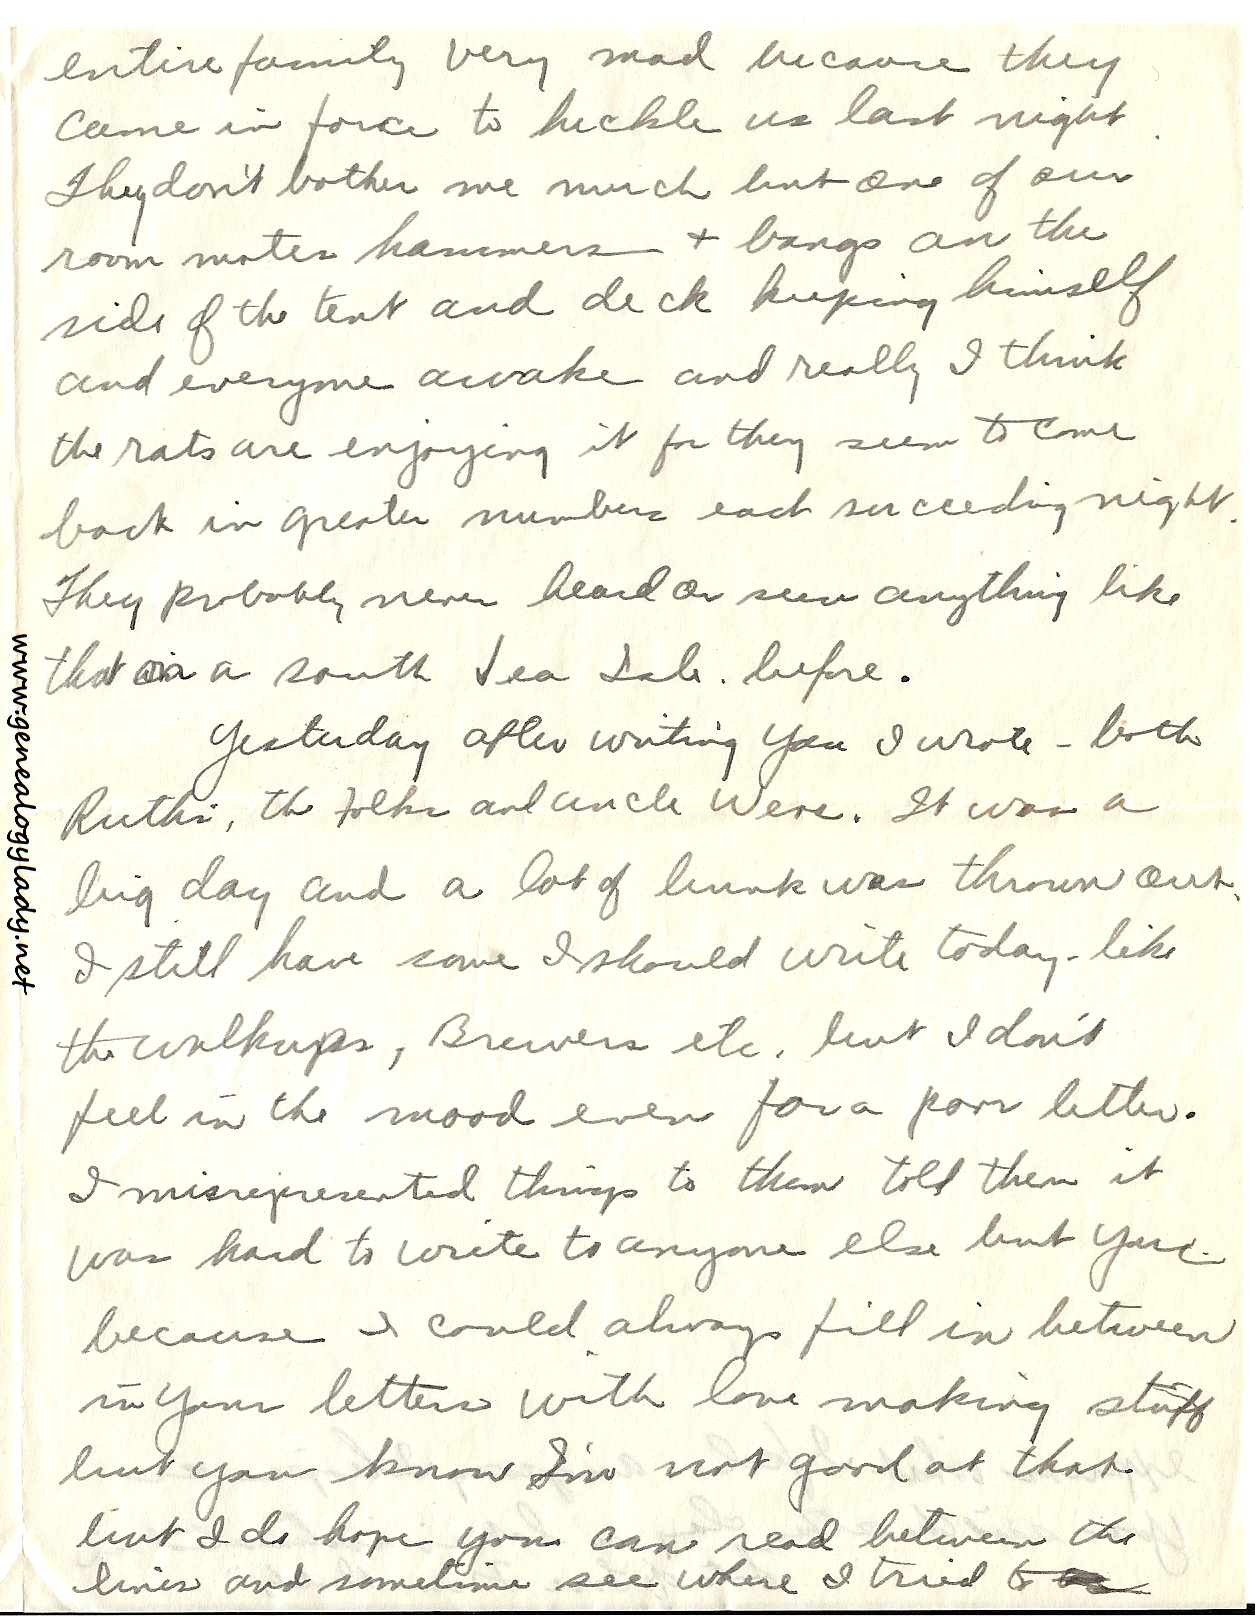 entire family very mad because they
came in force to heckle us last night.
They don't bother me much but one of our
room mates hammers + bangs on the
side of the tent and deck keeping himself
and everyone awake and really I think
the rats are enjoying it for they seem to come
back in greater numbers each succeeding night.
They probably never heard or seen anything like
that on a South Sea Isle. before.
Yesterday after writing you I wrote - both
Ruths, the folks and uncle Were. It was a
big day and a lot of bunk was thrown out.
I still have some I should write today - like
the Walkups, Brewers etc. but I don't
feel in the mood even for a poor letter.
I misrepresented things to them told them it
was hard to write to anyone else but you -
because I could always fill in between
in your letters with love making stuff
but you know I'm not good at that
but I do hope you can read between the
lines and sometime see where I tried to
www.genealogylady.net